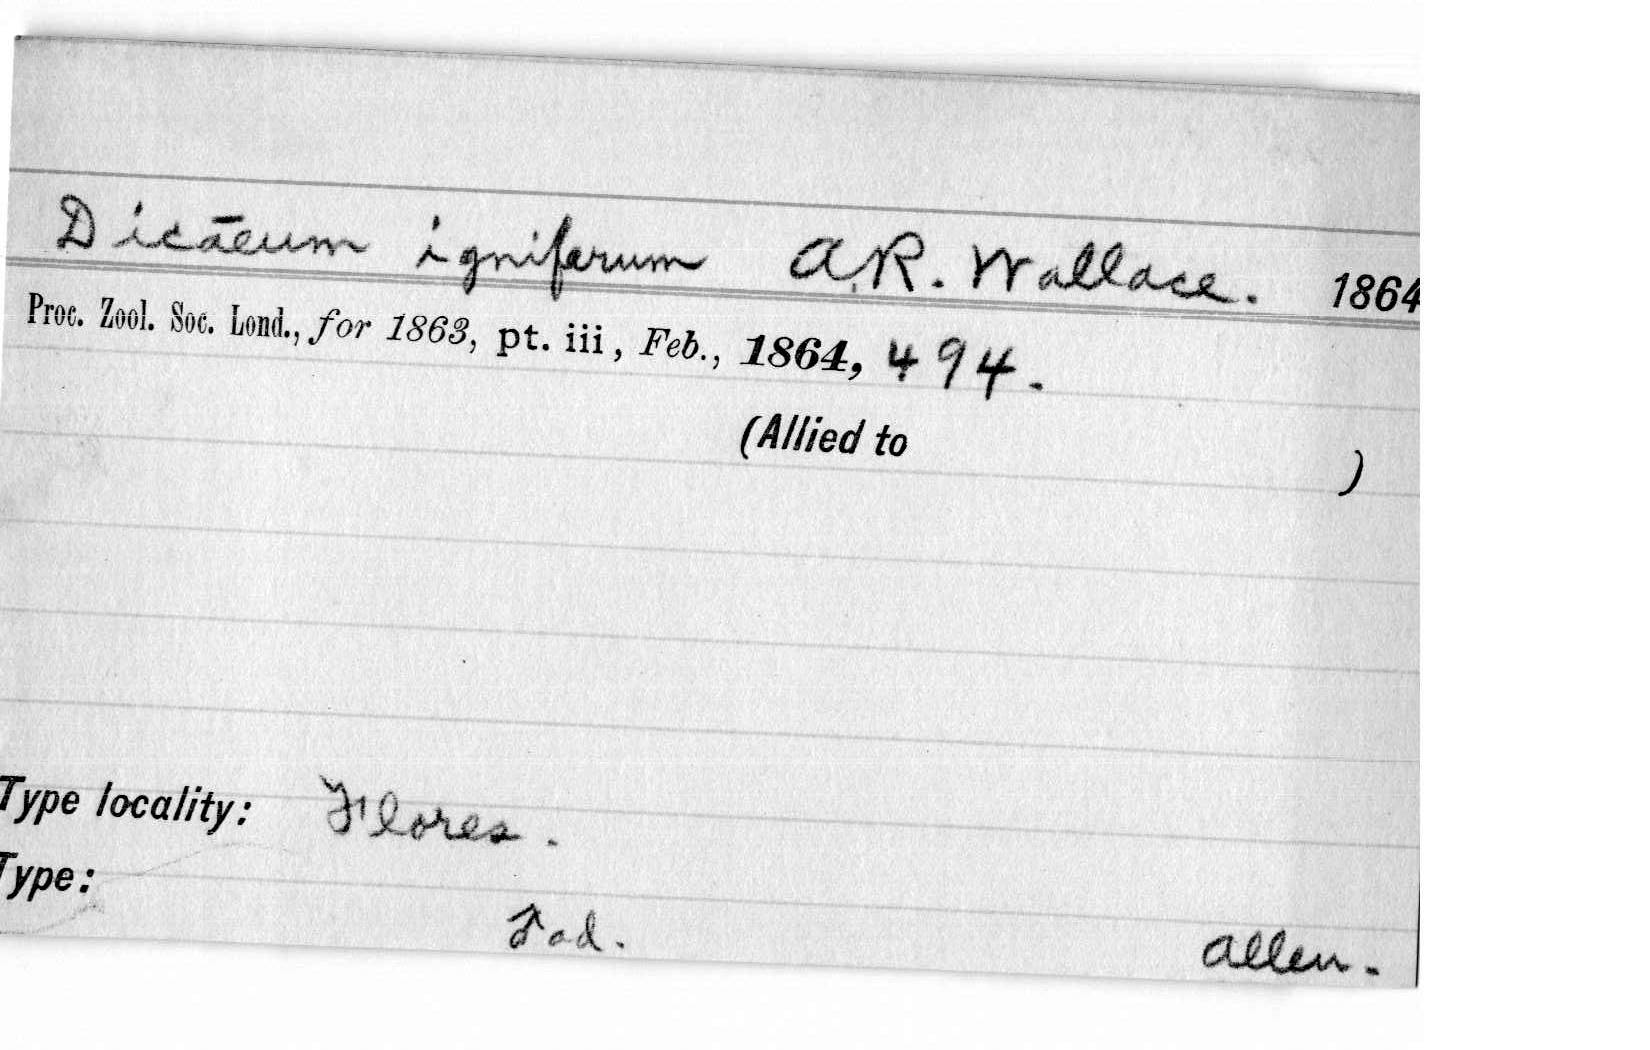 Dicāeum igniferum A.R. Wallace. 1864
Proc. Zool. Soc. Lond., for 1863, pt. iii, Feb., 1864, 494.
(Allied to )
Type locality: Flores.
Type:
♂ad. Allen.